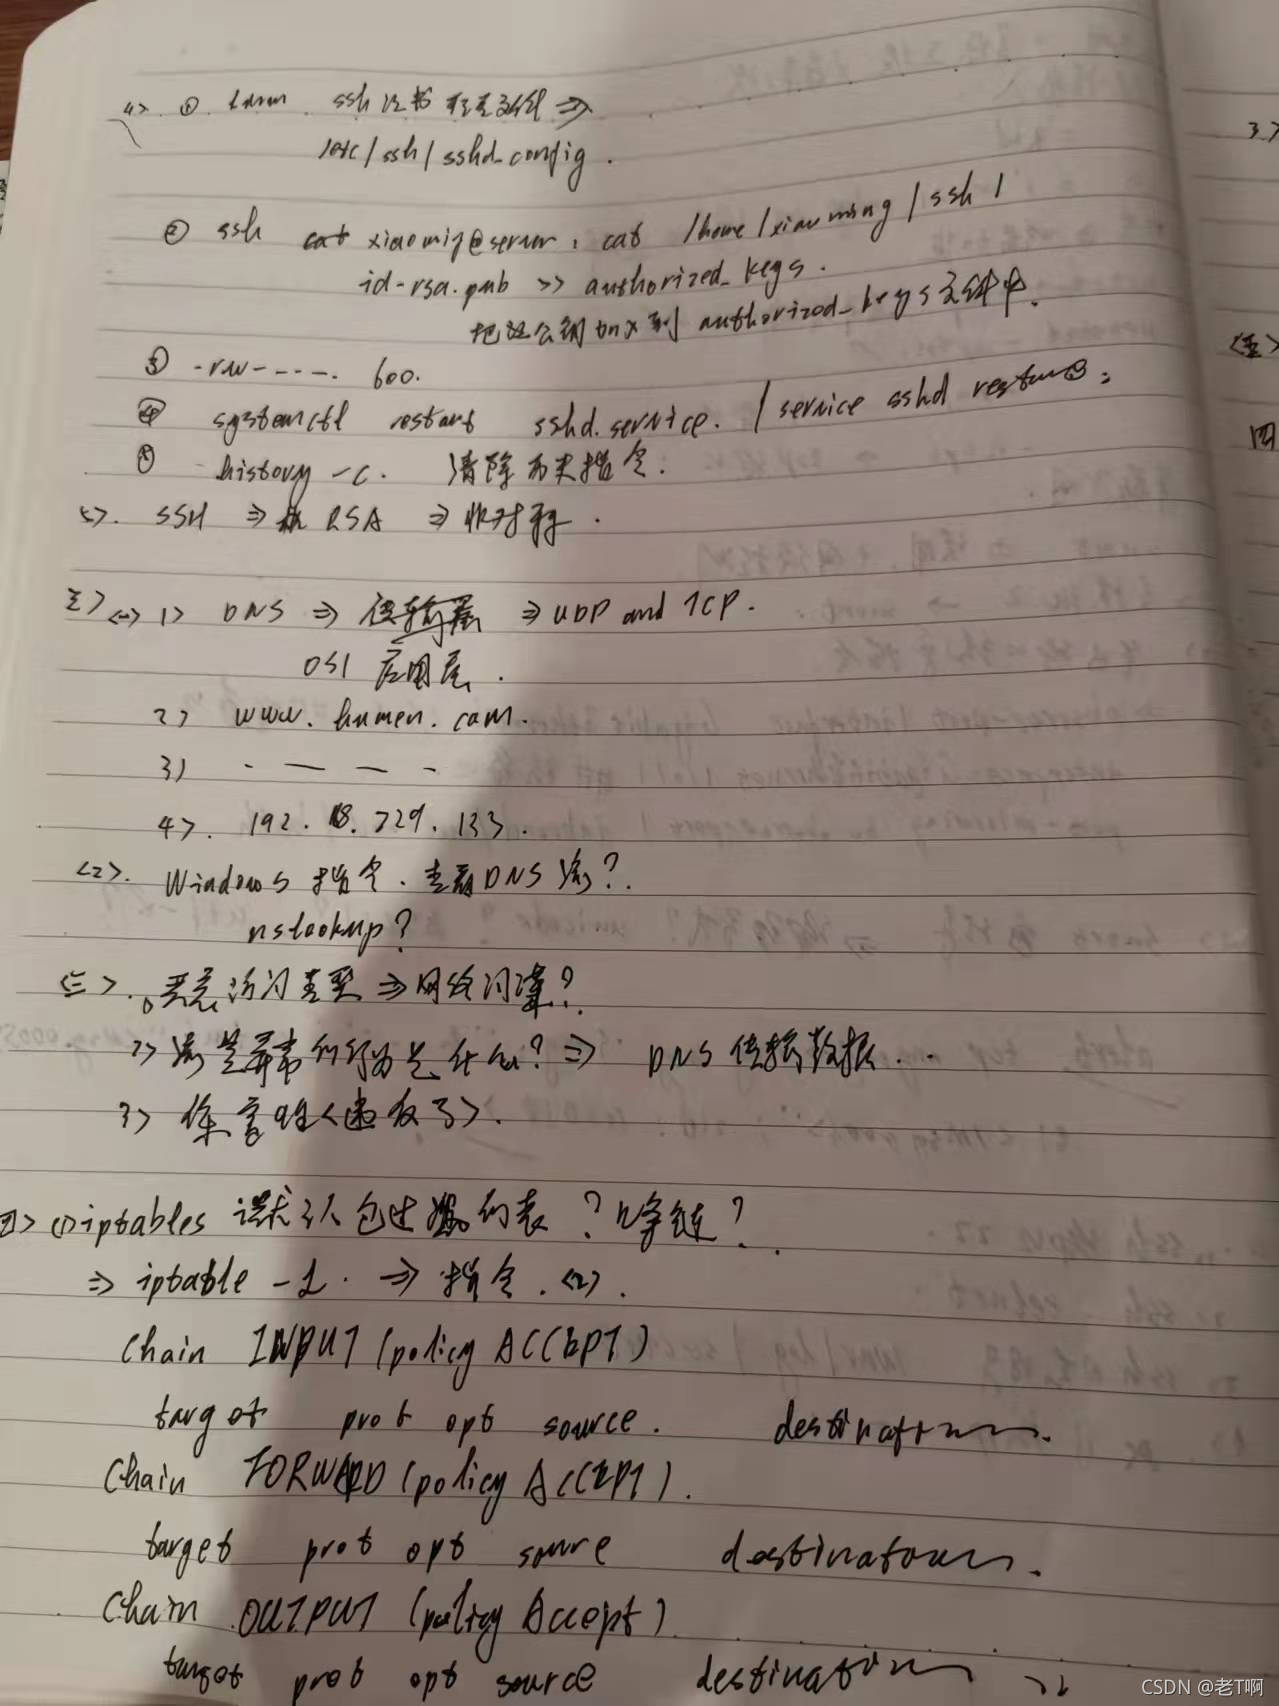 4> ① ssh 证书 配置文件 ⇒
/etc/ssh/sshd_config.
② ssh cat xiaoming@server, cat /home/xiaoming/ssh/
id-rsa.pub >> authorized_keys.
把这公钥 到 authorized_keys文件中.
③ -rw------- 600.
④ systemctl restart sshd.service. / service sshd restart
⑤ history -c. 清除历史指令.
5>. SSH ⇒ RSA ⇒ 非对称.
三> <一> 1> DNS ⇒ 传输层 ⇒ UDP and TCP.
OSI 应用层.
2> www.humen.com.
3) · — — ·
4>. 192.18.229.133.
<2>. Windows 指令. 查看DNS ?
nslookup?
<三>. 恶意 类型 ⇒ 网络 ?
2> 异常的行为是什么? ⇒ DNS传输数据..
3> 保密性<违反了>.
四> (1) iptables 默认包过滤的表? 几条链?
⇒ iptable -L. ⇒ 指令. <2>.
Chain INPUT (policy ACCEPT)
target prot opt source. destination.
Chain FORWARD (policy ACCEPT).
target prot opt source destination.
Chain OUTPUT (policy Accept)
target prot opt source destination
CSDN @老T啊